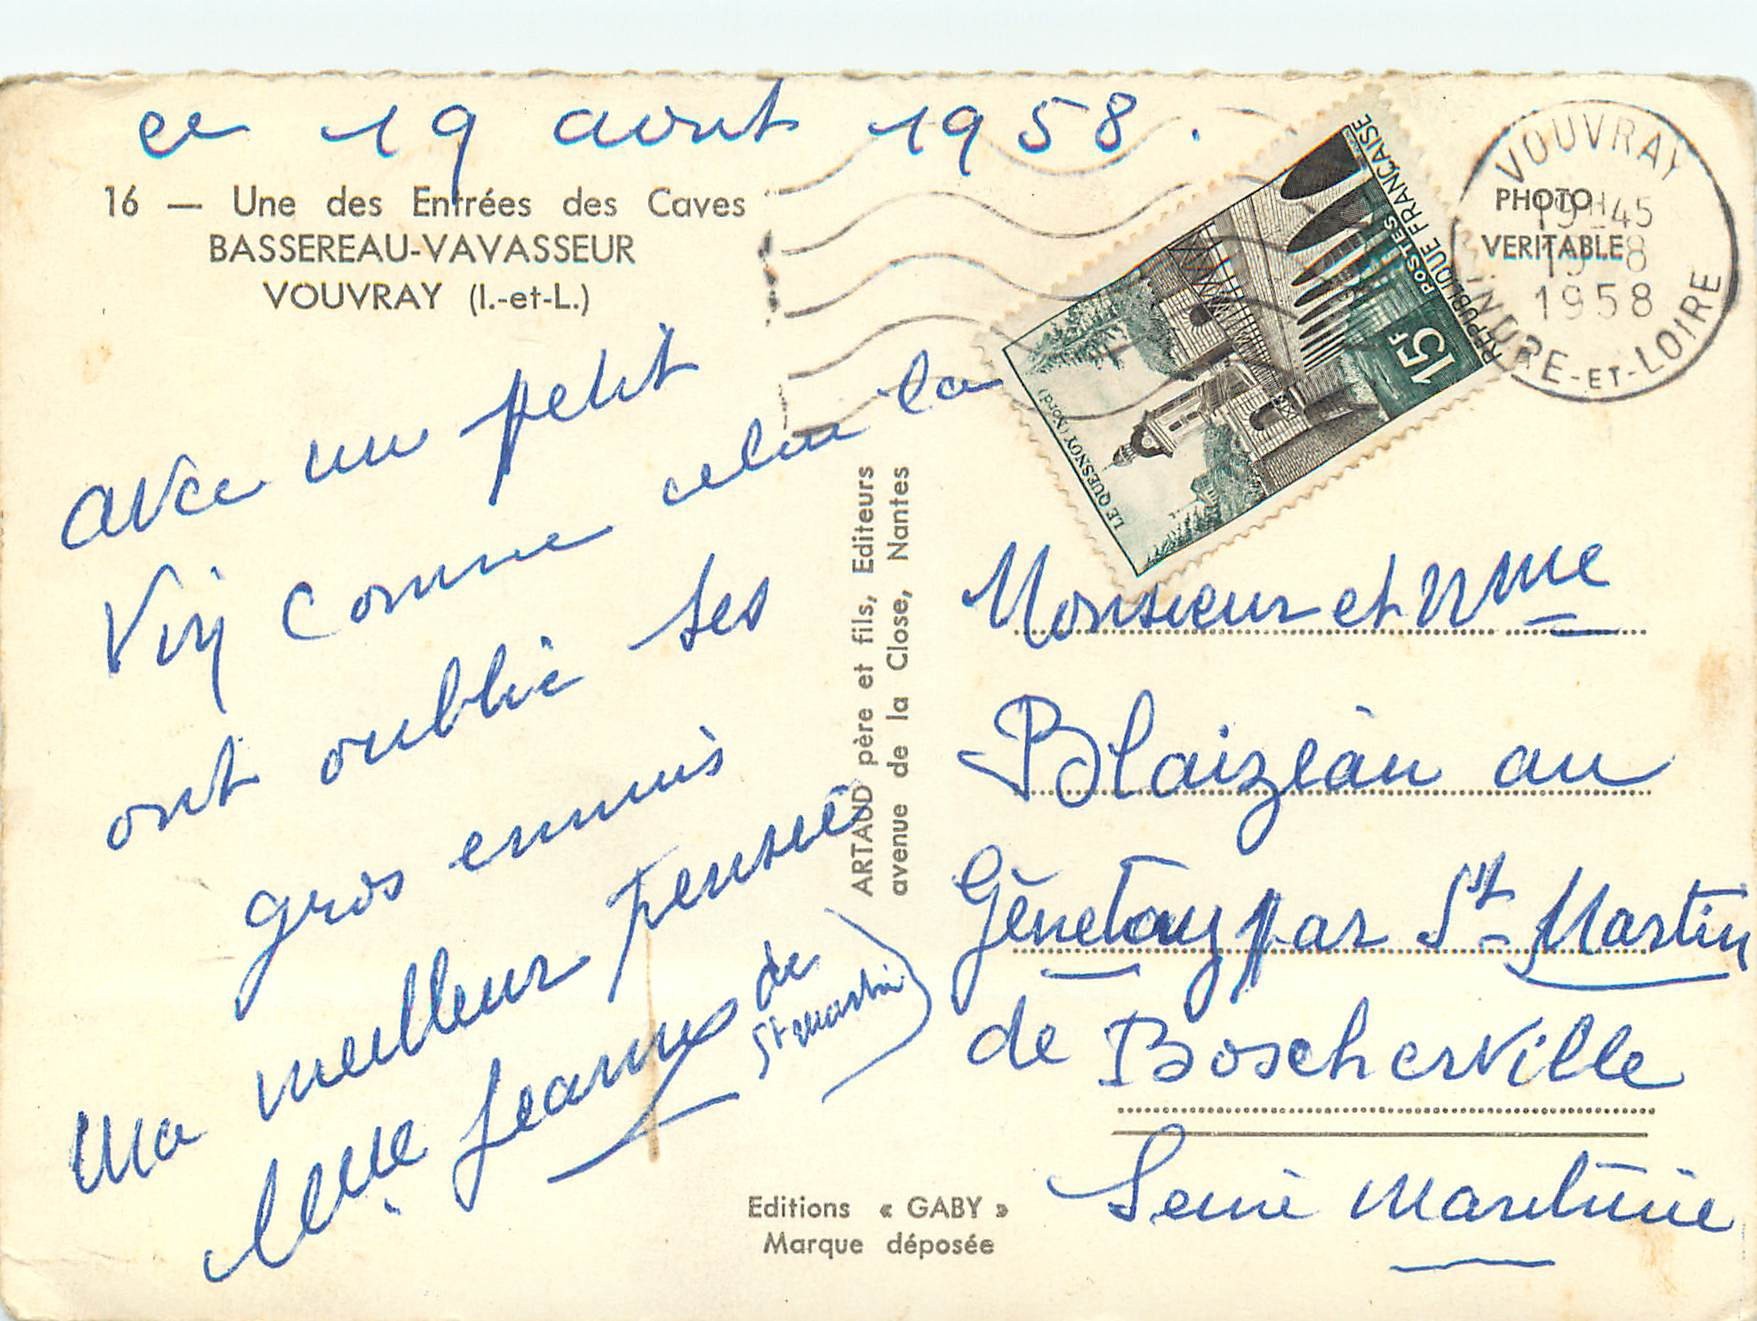 ce 19 aout 1958.
16 — Une des Entrées des Caves
BASSEREAU-VAVASSEUR
VOUVRAY (I.-et-L.)
avec un petit
Vin comme celui la
ont oublie ses
gros ennuis
Ma meilleur pensée
Melle Jeanne de
St Martin
ARTAUD père et fils, Editeurs
avenue de la Close, Nantes
Editions « GABY »
Marque déposée
POSTES
REPUBLIQUE FRANÇAISE
15F
LE QUESNOY (Nord)
VOUVRAY
19H45
19-8
1958
INDRE-ET-LOIRE
PHOTO
VERITABLE
Monsieur et Mme
Blaizeau au
Génetay par St-Martin
de Boscherville
Seine Maritime